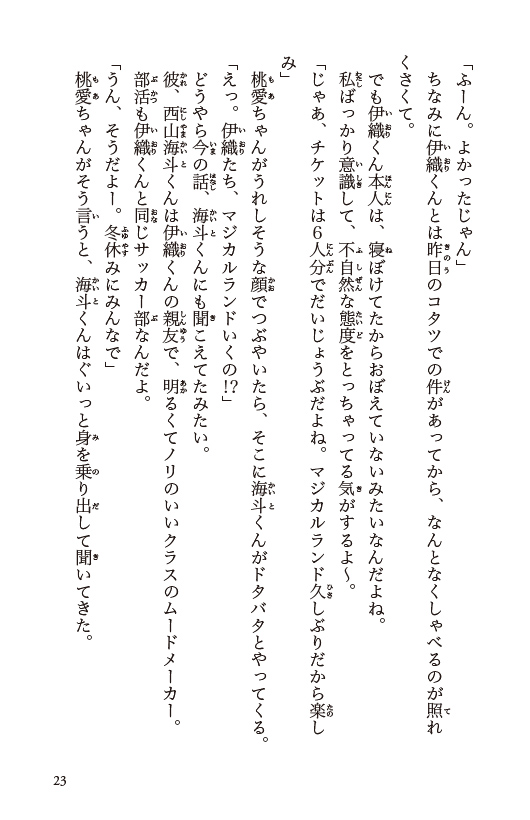 「ふーん。よかったじゃん」
ちなみに伊織くんとは昨日のコタツでの件があってから、なんとなくしゃべるのが照れ
くさくて。
でも伊織くん本人は、寝ぼけてたからおぼえていないみたいなんだよね。
私ばっかり意識して、不自然な態度をとっちゃってる気がするよ〜。
「じゃあ、チケットは６人分でだいじょうぶだよね。マジカルランド久しぶりだから楽し
み」
桃愛ちゃんがうれしそうな顔でつぶやいたら、そこに海斗くんがドタバタとやってくる。
「えっ。伊織たち、マジカルランドいくの!?」
どうやら今の話、海斗くんにも聞こえてたみたい。
彼、西山海斗くんは伊織くんの親友で、明るくてノリのいいクラスのムードメーカー。
部活も伊織くんと同じサッカー部なんだよ。
「うん、そうだよー。冬休みにみんなで」
桃愛ちゃんがそう言うと、海斗くんはぐいっと身を乗り出して聞いてきた。
23